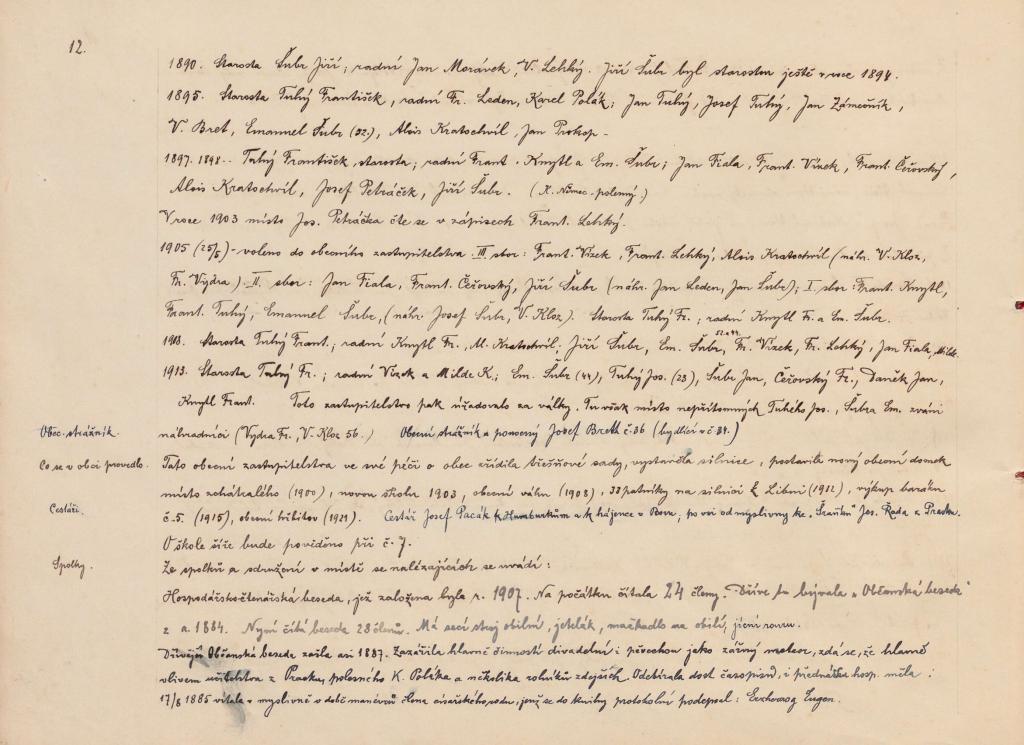 12.
1890. Starosta Šubr Jiří; radní Jan Morávek, V. Lehký. Jiří Šubr byl starostou ještě v roce 1894.
1895. Starosta Tuhý František, radní Fr. Leden, Karel Polák; Jan Tuhý, Josef Tuhý, Jan Zámečník,
V. Bret, Emanuel Šubr (52.), Alois Kratochvíl, Jan Prokop -
1897. 1898.. Tuhý František starosta; radní Frant. Kmytl a Em. Šubr; Jan Fiala, Frant. Vízek, Frant. Čeřovský,
Alois Kratochvíl, Josef Petráček, Jiří Šubr. (K. Němec - polesný.)
V roce 1903 místo Jos. Petráčka čte se v zápisech Frant. Lehký.
1905 (25/5) - voleno do obecního zastupitelstva. III sbor: Frant. Vízek, Frant. Lehký, Alois Kratochvíl (náhr. V. Kloz,
Fr. Vydra). II. sbor: Jan Fiala, Frant. Čeřovský, Jiří Šubr (náhr. Jan Leden, Jan Šubr); I. sbor: Frant. Kmytl,
Frant. Tuhý, Emanuel Šubr, (náhr. Josef Šubr, V. Kloz). Starosta Tuhý Fr.; radní Kmytl Fr. a Em. Šubr.
Starosta Tuhý Frant.; radní Kmytl Fr., Kratochvíl, Jiří Šubr, Em. Šubr, Fr. Vízek, Fr. Lehký, Jan Fiala, Milde.
1913. Starosta Tuhý Fr.; radní Vízek a Milde K.; Em. Šubr (44), Tuhý Jos. (23), Šubr Jan, Čeřovský Fr., Daněk Jan,
Kmytl Frant. Toto zastupitelstvo pak úřadovalo za války. Tu však místo nepřítomných Tuhého Jos., Šubra Em. zváni
Obec. strážník. náhradníci (Vydra Fr., V. Kloz 56.) Obecní strážník a ponocný Josef Brett č. 36 (bydlící v č. 34.)
Co se v obci provedlo. Tato obecní zastupitelstva ve své péči o obec zřídila třešňové sady, vystavěla silnice, postavila nový obecní domek
místo zchátralého (1900), novou školu 1903, obecní váhu (1908), patníky na silnici k Libni (1912), výkup baráku
Cestáři. č. 5. (1915), obecní hřbitov (1921). Cestář Josef Pacák k a k hájence v Boru; po vsi od myslivny ke „Šraňku" Jos. Řada z Prasku.
O škole šíře bude pověděno při č. 7.
Spolky. Ze spolků a sdružení v místě se nalézajících se uvádí:
Hospodářsko-čtenářská beseda, jež založena byla r. 1907. Na počátku čítala 24 členy. Dříve tu bývala „Občanská beseda"
z r. 1884. Nyní čítá beseda 28 členů. Má secí stroj obilní, jetelák, mačkadlo na obilí, jícní rouru.
Dřívější Občanská beseda zašla asi 1887. Zazářila hlavně činností divadelní i pěveckou jako zářný meteor, zdá se, že hlavně
vlivem učitelstva z Prasku, polesného K. Poláka a několika rolníků zdejších. Odebírala dost časopisů, i přednášku hosp. měla.
17/8 1885 vítala v myslivně v době manévrů člena císařského rodu, jenž se do knihy protokolní podepsal: Erzherzog Eugen.